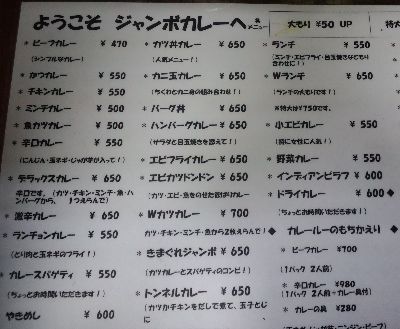 ようこそ ジャンボカレーへ
メニュー
大もり ¥50 UP
特大
＊ビーフカレー ¥470
(シンプルなカレー)
＊かつカレー ¥550
＊チキンカレー ¥550
＊ミンチカレー ¥500
＊魚カツカレー ¥500
＊辛口カレー ¥550
(にんじん・玉ネギ・じゃが芋が入って！)
＊デラックスカレー ¥650
辛口です。(カツ・チキン・ミンチ・魚・ハンバーグから、1つえらんで)
＊激辛カレー ¥650
＊ランチョンカレー ¥550
(とり肉と玉ネギのフライ)
＊カレースパゲティ ¥550
(ちょっとお時間いただきます)
やきめし ¥600
＊カツ丼カレー ¥650
(人気メニュー！)
＊カニ玉カレー ¥650
(ちくわとカニ缶の組み合わせ！)
＊バーグ丼 ¥650
＊ハンバーグカレー ¥650
(サラダと目玉焼を添えて！)
＊エビフライカレー ¥650
＊エビカツドンドン ¥650
(カツ・エビ・魚をのせた欲ばりカレー
＊Wカツカレー ¥700
カツ・チキン・ミンチ・魚から2枚えらんで！)
＊きまぐれジャンボ ¥650
(カツカレーとスパゲティのコンビ！)
＊トンネルカレー ¥650
(カツかチキンをだしで煮て、玉子とじに
＊ランチ ¥550
(ミンチ・エビフライ・目玉焼きなどもり合わせに！)
＊Wランチ ¥650
(ランチの大もりです！)
＊特大は¥750です。
＊小エビカレー ¥550
(特に女性に人気！)
＊野菜カレー ¥550
＊インディアンピラフ ¥600
＊ドライカレー ¥600
(ちょっとお時間いただきます！)
◆ カレールーのもちかえり ◆
＊ビーフカレー ¥700
(1パック 2人前)
＊辛口カレー ¥980
(1パック 2人前+カレー具付)
＊カレーの具 ¥280